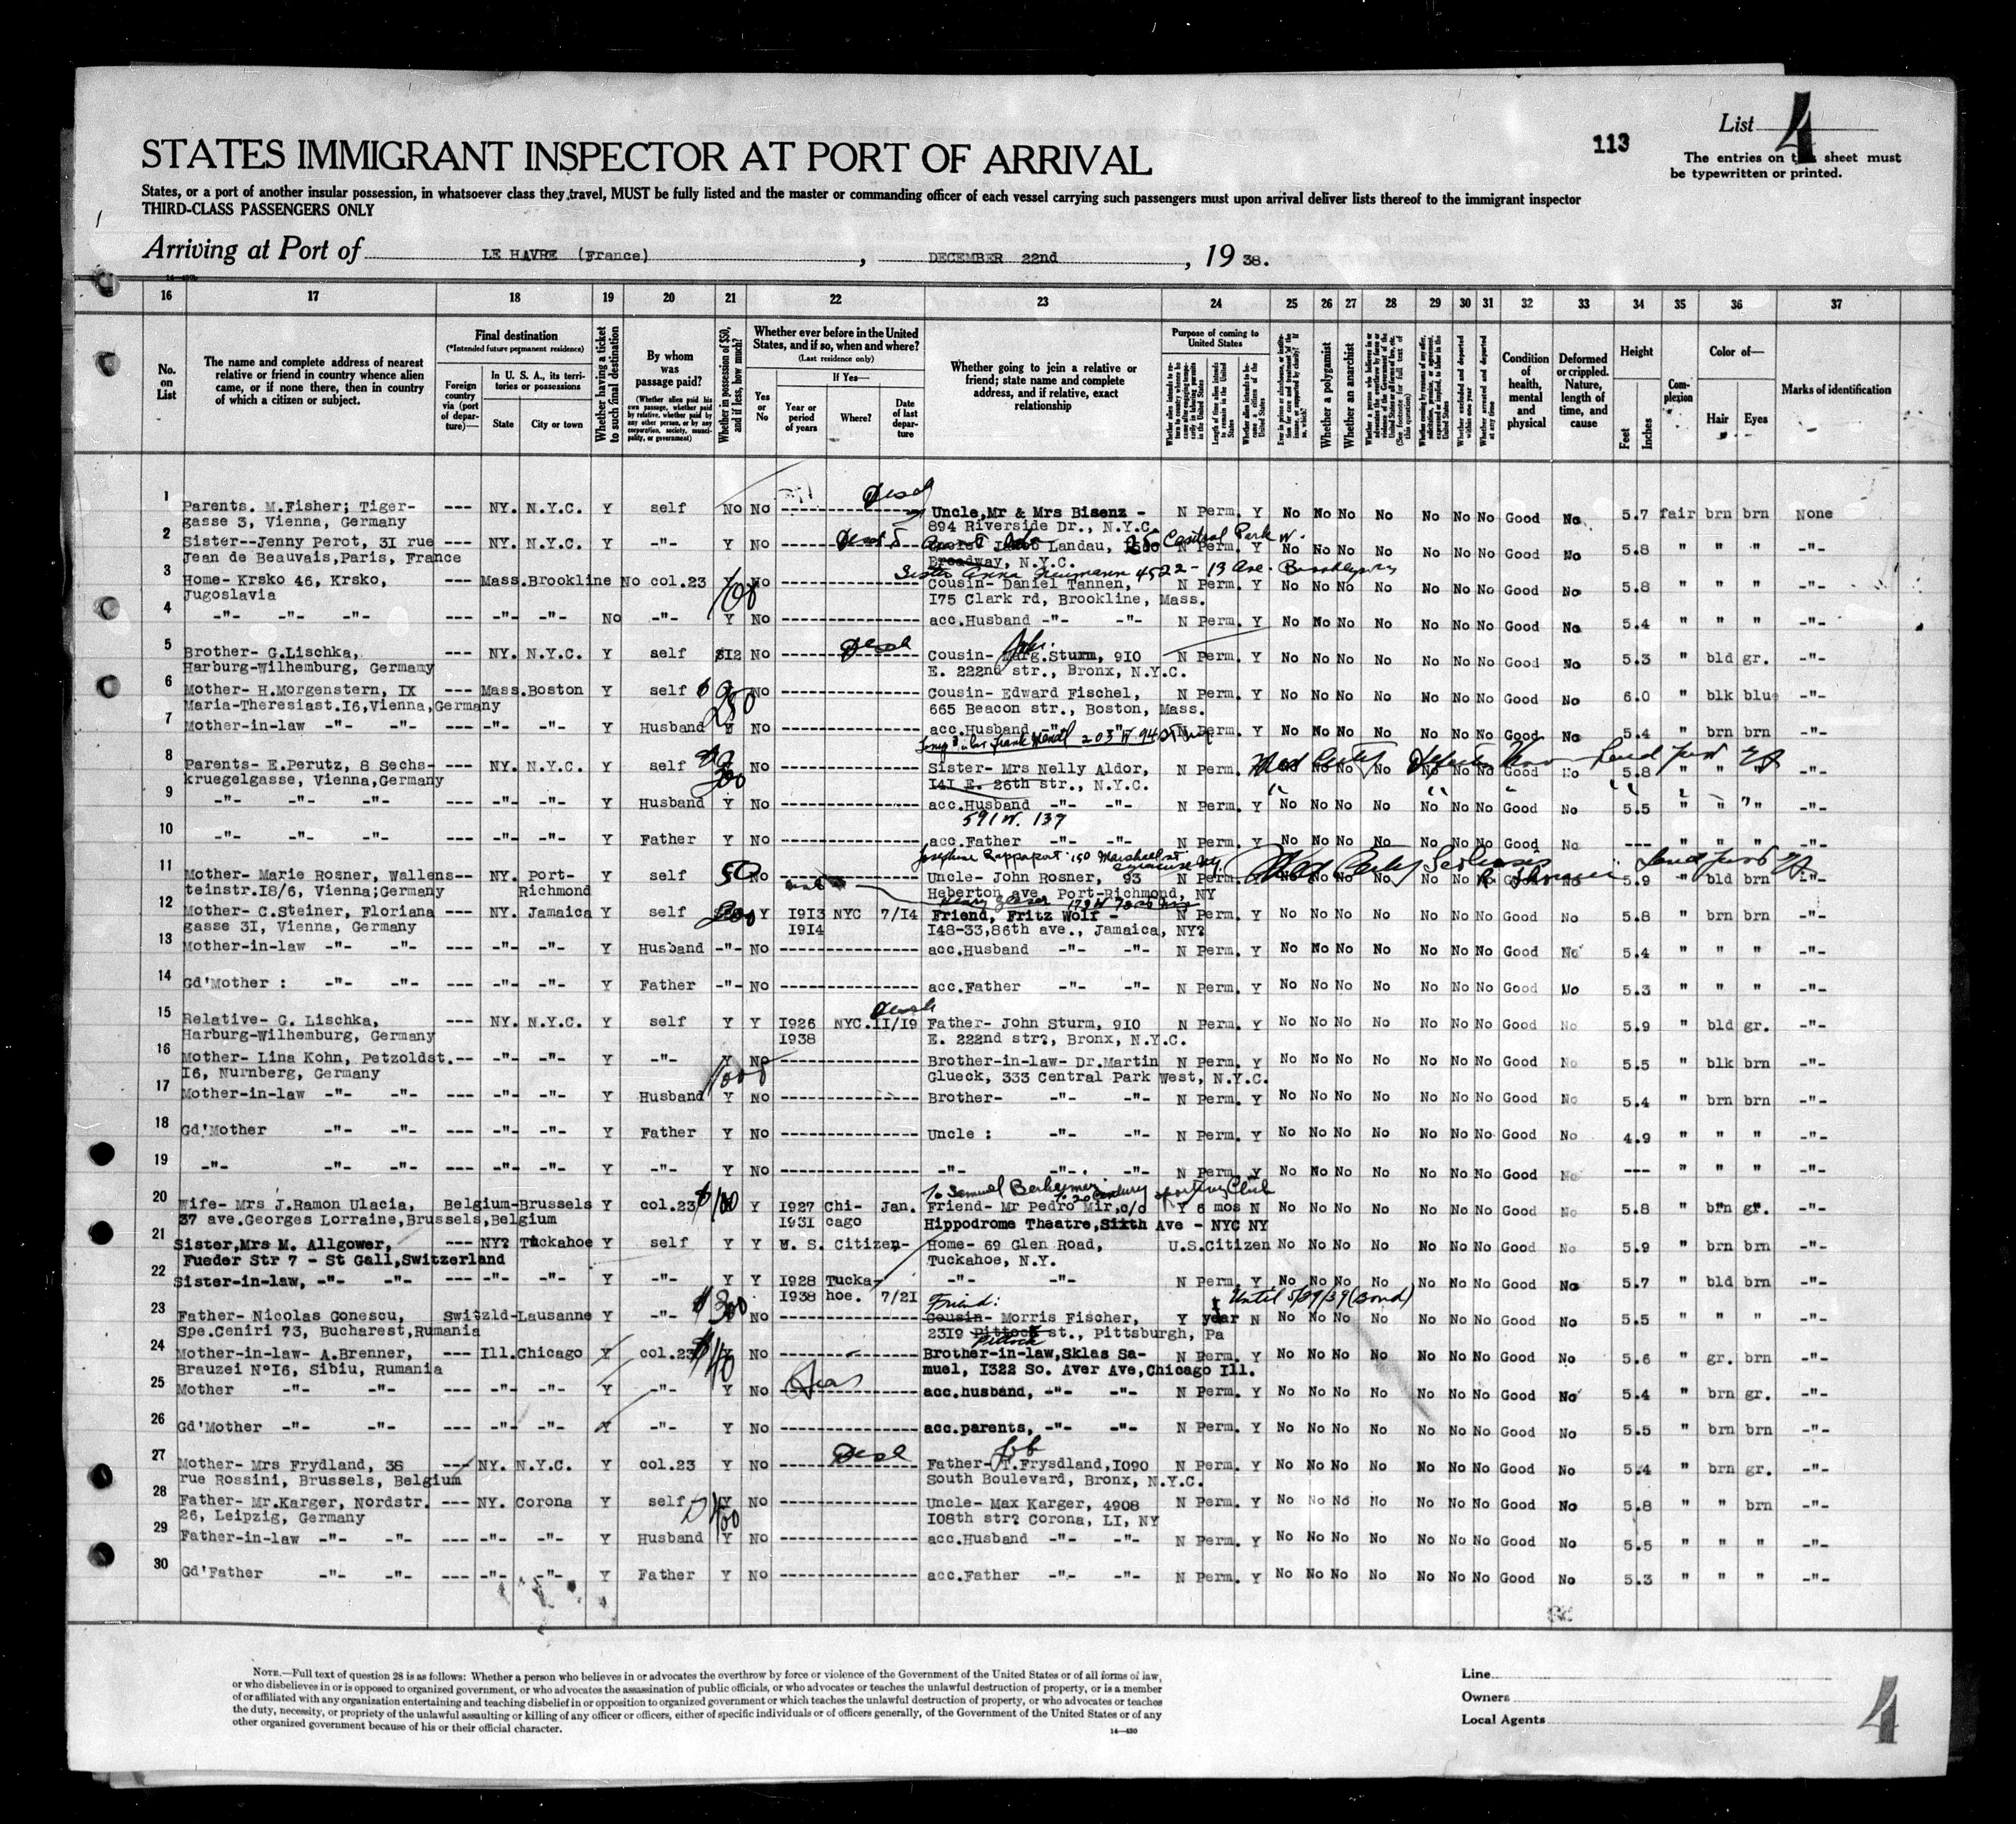 List 4
113
The entries on this sheet must
be typewritten or printed.
STATES IMMIGRANT INSPECTOR AT PORT OF ARRIVAL
States, or a port of another insular possession, in whatsoever class they travel, MUST be fully listed and the master or commanding officer of each vessel carrying such passengers must upon arrival deliver lists thereof to the immigrant inspector
THIRD-CLASS PASSENGERS ONLY
Arriving at Port of LE HAVRE (France), DECEMBER 22nd, 19 38.
16 17 18 19 20 21 22 23 24 25 26 27 28 29 30 31 32 33 34 35 36 37
No. on List
The name and complete address of nearest relative or friend in country whence alien came, or if none there, then in country of which a citizen or subject.
Final destination
(*Intended future permanent residence)
Foreign country via (port of departure)—
In U. S. A., its territories or possessions
State City or town
Whether having a ticket to such final destination
By whom was passage paid?
(Whether alien paid his own passage, whether paid by relative, whether paid by any other person, or by any corporation, society, municipality, or government)
Whether in possession of $50, and if less, how much?
Whether ever before in the United States, and if so, when and where?
(Last residence only)
Yes or No
If Yes—
Year or period of years
Where?
Date of last departure
Whether going to join a relative or friend; state name and complete address, and if relative, exact relationship
Purpose of coming to United States
Whether a polygamist
Whether an anarchist
Condition of health, mental and physical
Deformed or crippled. Nature, length of time, and cause
Height
Feet Inches
Complexion
Color of—
Hair Eyes
Marks of identification
1 Parents. M.Fisher; Tiger- --- NY. N.Y.C. Y self No No Uncle,Mr & Mrs Bisenz - N Perm. Y No No No No No No No Good No 5.7 fair brn brn None
gasse 3, Vienna, Germany 894 Riverside Dr., N.Y.C.
2 Sister--Jenny Perot, 31 rue --- NY. N.Y.C. Y -"- Y No Landau, 25 Central Park W. N Perm. Y No No No No No No No Good No 5.8 " " " -"-
Jean de Beauvais,Paris, France Broadway, N.Y.C.
Sister Anna Neumann 4522 - 13 Ave. Brooklyn
3 Home- Krsko 46, Krsko, --- Mass.Brookline No col.23 Y No Cousin- Daniel Tannen, N Perm. Y No No No No No No No Good No 5.8 " " " -"-
Jugoslavia 175 Clark rd, Brookline, Mass.
4 -"- -"- -"- --- -"- -"- No -"- Y No acc.Husband -"- -"- N Perm. Y No No No No No No No Good No 5.4 " " " -"-
5 Brother- G.Lischka, --- NY. N.Y.C. Y self $12 No Cousin- Marg.Sturm, 910 N Perm. Y No No No No No No No Good No 5.3 " bld gr. -"-
Harburg-Wilhemburg, Germany E. 222nd str., Bronx, N.Y.C.
6 Mother- H.Morgenstern, IX --- Mass.Boston Y self No Cousin- Edward Fischel, N Perm. Y No No No No No No No Good No 6.0 " blk blue -"-
Maria-Theresiast.16,Vienna,Germany 250 665 Beacon str., Boston, Mass.
7 Mother-in-law -"- -"- --- -"- -"- Y Husband Y No acc.Husband -"- -"- N Perm. Y No No No No No No No Good No 5.4 " brn brn -"-
203 W 94 St
8 Parents- E.Perutz, 8 Sechs- --- NY. N.Y.C. Y self No Sister- Mrs Nelly Aldor, N Perm. No No No No Good No 5.8 " " -"-
kruegelgasse, Vienna,Germany 300 141 E. 26th str., N.Y.C.
9 -"- -"- -"- --- -"- -"- Y Husband Y No acc.Husband -"- -"- N Perm. Y No No No No No No No Good No 5.5 " " " -"-
591 W. 137
10 -"- -"- -"- --- -"- -"- Y Father Y No acc.Father -"- -"- N Perm. Y No No No No No No No Good No --- " " " -"-
Josephine Rappaport 150 Marshall st Syracuse NY.
11 Mother- Marie Rosner, Wallens-- NY. Port- Y self 50 No Uncle- John Rosner, 93 N Perm. No 5.9 " bld brn -"-
teinstr.18/6, Vienna;Germany Richmond Heberton ave, Port-Richmond, NY
12 Mother- C.Steiner, Floriana --- NY. Jamaica Y self 200 Y 1913 NYC 7/14 Friend, Fritz Wolf - N Perm. Y No No No No No No No Good No 5.8 " brn brn -"-
gasse 31, Vienna, Germany 1914 148-33,86th ave., Jamaica, NY?
13 Mother-in-law -"- -"- --- -"- -"- Y Husband -"- No acc.Husband -"- -"- N Perm. Y No No No No No No No Good No 5.4 " " " -"-
14 Gd'Mother : -"- -"- --- -"- -"- Y Father -"- No acc.Father -"- -"- N Perm. Y No No No No No No No Good No 5.3 " " " -"-
15 Relative- G. Lischka, --- NY. N.Y.C. Y self Y Y 1926 NYC. 11/19 Father- John Sturm, 910 N Perm. Y No No No No No No No Good No 5.9 " bld gr. -"-
Harburg-Wilhemburg, Germany 1938 E. 222nd str?, Bronx, N.Y.C.
16 Mother- Lina Kohn, Petzoldst.-- -"- -"- Y -"- Y No Brother-in-law- Dr.Martin N Perm. Y No No No No No No No Good No 5.5 " blk brn -"-
16, Nurnberg, Germany 1000 Glueck, 333 Central Park West, N.Y.C.
17 Mother-in-law -"- -"- --- -"- -"- Y Husband Y No Brother- -"- -"- N Perm. Y No No No No No No No Good No 5.4 " brn brn -"-
18 Gd'Mother -"- -"- --- -"- -"- Y Father Y No Uncle : -"- -"- N Perm. Y No No No No No No No Good No 4.9 " " " -"-
19 -"- -"- -"- --- -"- -"- Y -"- Y No -"- -"- -"- N Perm. Y No No No No No No No Good No --- " " " -"-
To Samuel Berheimer 20 Century Sporting Club
20 Wife- Mrs J.Ramon Ulacia, Belgium-Brussels Y col.23 $100 Y 1927 Chi- Jan. Friend- Mr Pedro Mir,c/o Y 6 mos N No No No No No No No Good No 5.8 " brn gr. -"-
37 ave.Georges Lorraine,Brussels,Belgium 1931 cago Hippodrome Theatre,Sixth Ave - NYC NY
21 Sister,Mrs M. Allgower, --- NY? Tuckahoe Y self Y Y U. S. Citizen- Home- 69 Glen Road, U.S.Citizen No No No No No No No Good No 5.9 " brn brn -"-
Fueder Str 7 - St Gall,Switzerland Tuckahoe, N.Y.
22 Sister-in-law, -"- -"- --- -"- -"- Y -"- Y Y 1928 Tucka- -"- -"- N Perm. Y No No No No No No No Good No 5.7 " bld brn -"-
1938 hoe. 7/21 Friend: Until 5/29/39 (Bond)
23 Father- Nicolas Gonescu, Switzld-Lausanne Y -"- $300 No Cousin- Morris Fischer, Y year N No No No No No No No Good No 5.5 " " " -"-
Spe.Ceniri 73, Bucharest,Rumania 2319 Pittock st., Pittsburgh, Pa
24 Mother-in-law- A.Brenner, --- Ill.Chicago Y col.23 $40 No Brother-in-law,Sklas Sa- N Perm. Y No No No No No No No Good No 5.6 " gr. brn -"-
Brauzei N°16, Sibiu, Rumania muel, 1322 So. Aver Ave,Chicago Ill.
25 Mother -"- -"- --- -"- -"- Y -"- Y No acc.husband, -"- -"- N Perm. Y No No No No No No No Good No 5.4 " brn gr. -"-
26 Gd'Mother -"- -"- --- -"- -"- Y -"- Y No acc.parents, -"- -"- N Perm. Y No No No No No No No Good No 5.5 " brn brn -"-
27 Mother- Mrs Frydland, 36 --- NY. N.Y.C. Y col.23 Y No Father- T.Frysdland,1090 N Perm. Y No No No No No No No Good No 5.4 " brn gr. -"-
rue Rossini, Brussels, Belgium South Boulevard, Bronx, N.Y.C.
28 Father- Mr.Karger, Nordstr. --- NY. Corona Y self Y No Uncle- Max Karger, 4908 N Perm. Y No No No No No No No Good No 5.8 " " brn -"-
26, Leipzig, Germany 108th str? Corona, LI, NY
29 Father-in-law -"- -"- --- -"- -"- Y Husband Y No acc.Husband -"- -"- N Perm. Y No No No No No No No Good No 5.5 " " " -"-
30 Gd'Father -"- -"- --- -"- -"- Y Father Y No acc.Father -"- -"- N Perm. Y No No No No No No No Good No 5.3 " " " -"-
NOTE.—Full text of question 28 is as follows: Whether a person who believes in or advocates the overthrow by force or violence of the Government of the United States or of all forms of law,
or who disbelieves in or is opposed to organized government, or who advocates the assassination of public officials, or who advocates or teaches the unlawful destruction of property, or is a member
of or affiliated with any organization entertaining and teaching disbelief in or opposition to organized government or which teaches the unlawful destruction of property, or who advocates or teaches
the duty, necessity, or propriety of the unlawful assaulting or killing of any officer or officers, either of specific individuals or of officers generally, of the Government of the United States or of any
other organized government because of his or their official character.
14—430
Line
Owners
Local Agents
4